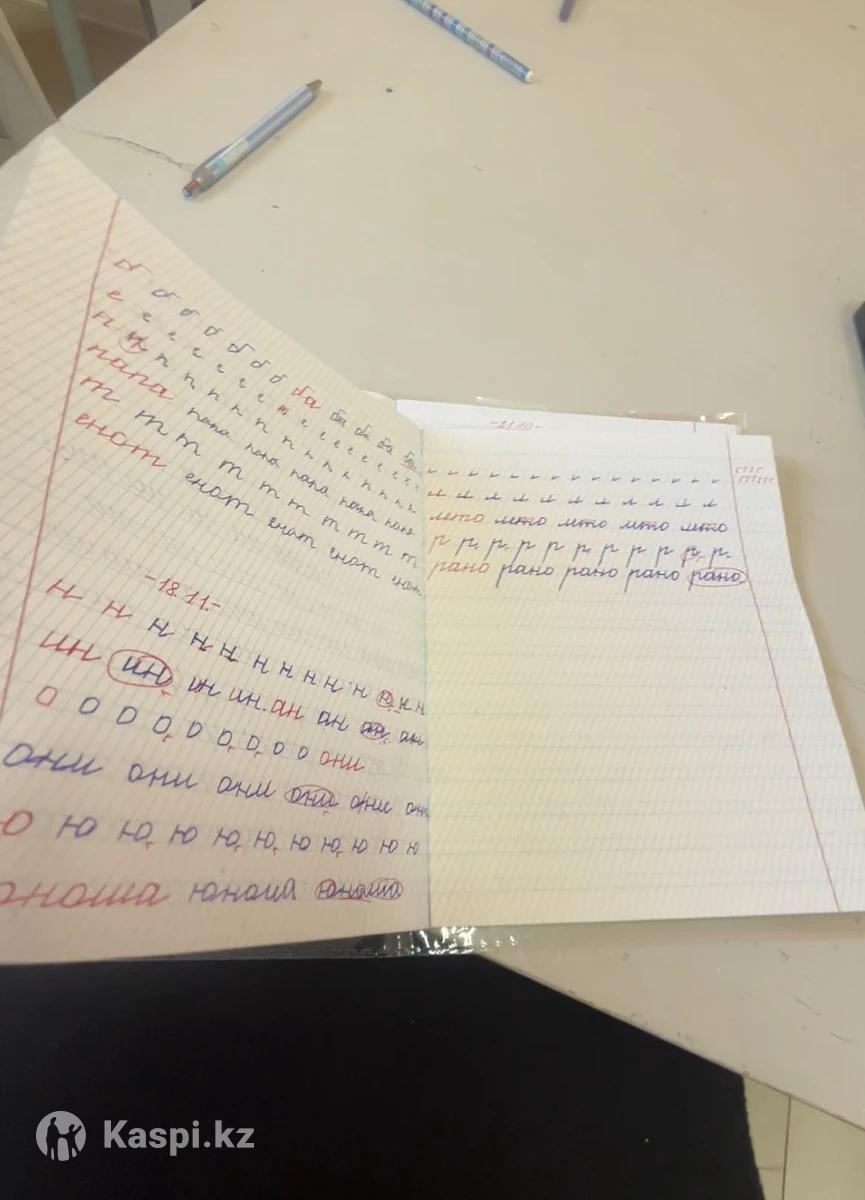 б б б б б б б ба ба ба ба ба
е е е е е е е е е е е е е
н н п п п п п п п п п п п
папа папа папа папа папа папа
т т т т т т т т т т т
енот енот енот енот енот
-18.11.-
н н н н н н н н н н н н н
ин ин ин ин. ан ан ан ан
о о о о о о о о о они
они они они они они они
ю ю ю ю ю ю ю ю ю ю ю
юноша юноша юноша
-21.10-
л л л л л л л л л л л
лето лето лето лето лето
р р р р р р р р р р р
рано рано рано рано рано
Kaspi.kz